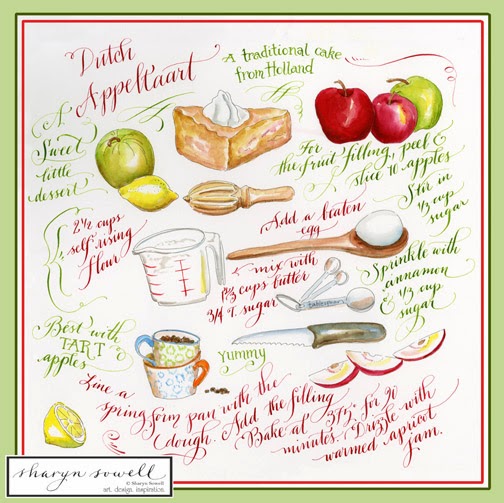 Dutch
Appeltaart
A traditional cake
from Holland
A
Sweet
little
dessert
For
the fruit filling, peel &
slice 10 apples
Stir in
1/3 cup
sugar
2 1/2 cups
self rising
flour
Add a beaten
egg
mix with
cups butter
3/4 T. sugar
tablespoon
Sprinkle with
cinnamon
& 1/3 cup
sugar
Best with
TART
apples
yummy
Line a
spring form pan with the
dough. Add the filling
Bake at 375° for
minutes. Drizzle with
warmed apricot
jam.
sharyn sowell
© Sharyn Sowell
art. design. inspiration.